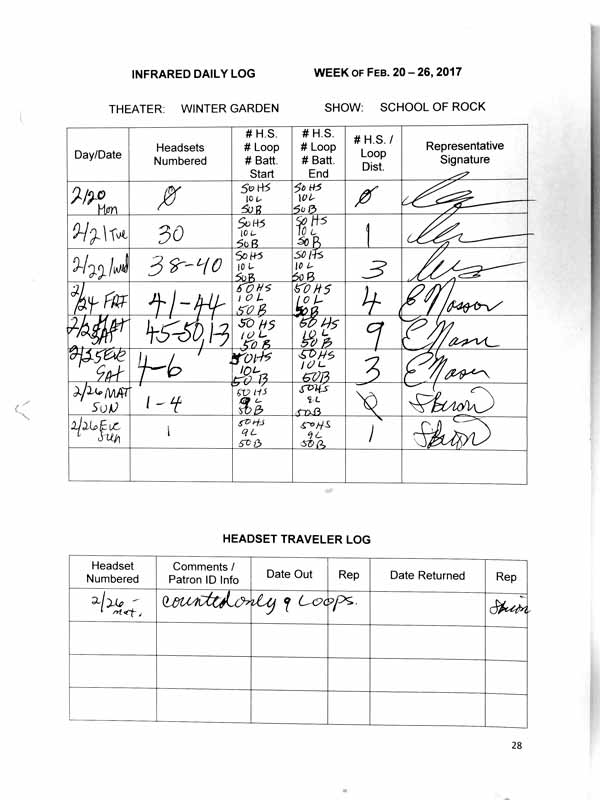 INFRARED DAILY LOG WEEK OF FEB. 20 – 26, 2017
THEATER: WINTER GARDEN SHOW: SCHOOL OF ROCK
Day/Date Headsets Numbered # H.S. # Loop # Batt. Start # H.S. # Loop # Batt. End # H.S. / Loop Dist. Representative Signature
2/20 Mon 0 50HS 10L 50B 50HS 10L 50B 0
2/21 Tue 30 50HS 10L 50B 50HS 10L 50B 1
2/22/Wed 38-40 50HS 10L 50B 50HS 10L 50B 3
2/24 FRI 41-44 50HS 10L 50B 50HS 10L 50B 4
MAT SAT 45-50, 1-3 50HS 10L 50B 50HS 10L 50B 9
2/25 Eve SAT 4-6 50HS 10L 50B 50HS 10L 50B 3
2/26 MAT SUN 1-4 50HS 9L 50B 50HS 9L 50B 0
2/26 Eve Sun 1 50HS 9L 50B 50HS 9L 50B 1
HEADSET TRAVELER LOG
Headset Numbered Comments / Patron ID Info Date Out Rep Date Returned Rep
2/26 - mat. counted only 9 Loops.
28